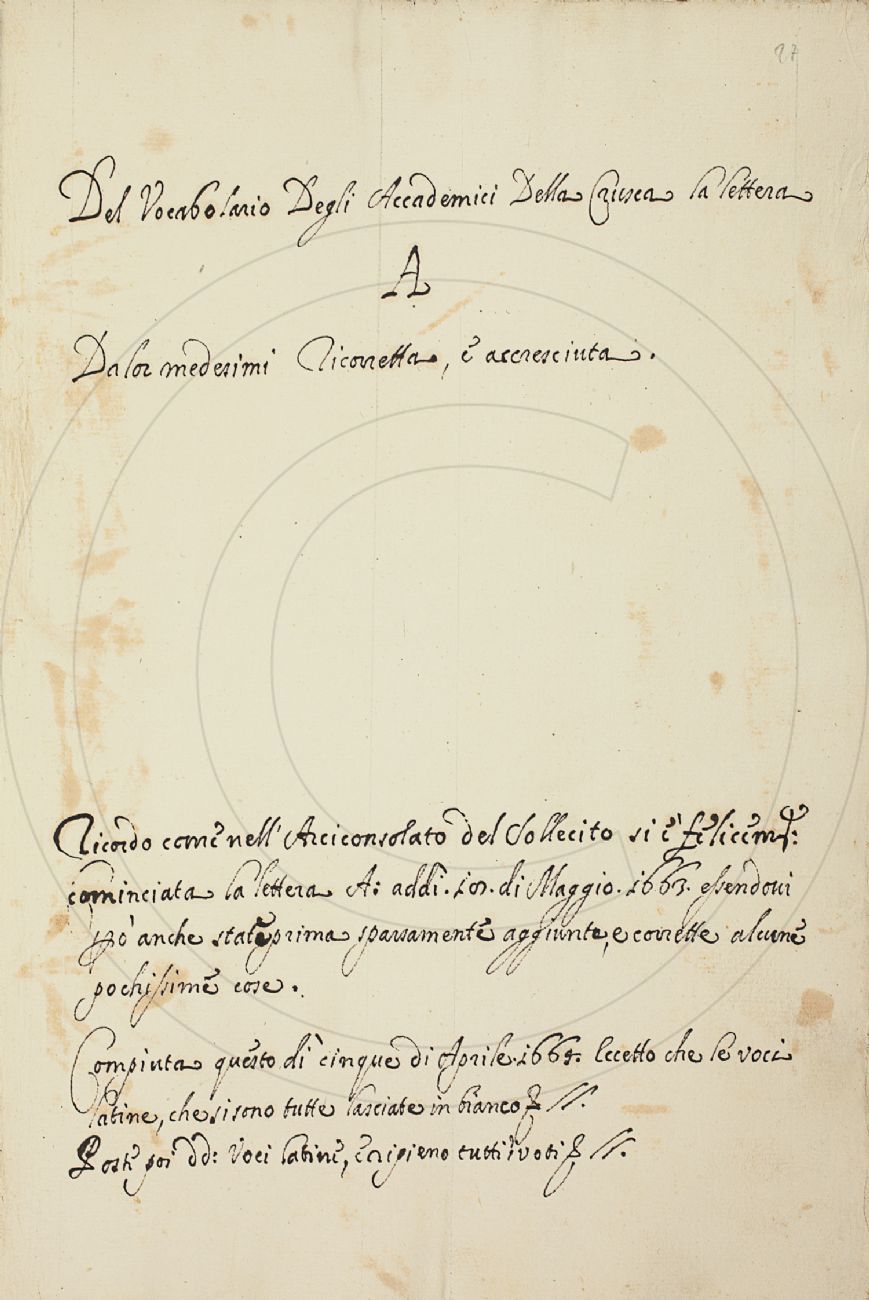 27
Del Vocabolario Degli Accademici Della Crusca la lettera
A
Da lor medesimi Ricorretta, è accresciuta.
Ricordo come nell'Arciconsolato del Sollecito si è felicem.te:
cominciata la lettera A: addì. .di Maggio. 1663. essendovi
però anche state prima sparsamente aggiunte, e corrette alcune
pochissime cose.
Compiuta questo dì cinque di Aprile. Eccetto che le voci
latine, che si sono tutte lasciate in bianco
Poste poi dd: Voci latine, è ripieno tutti i voti